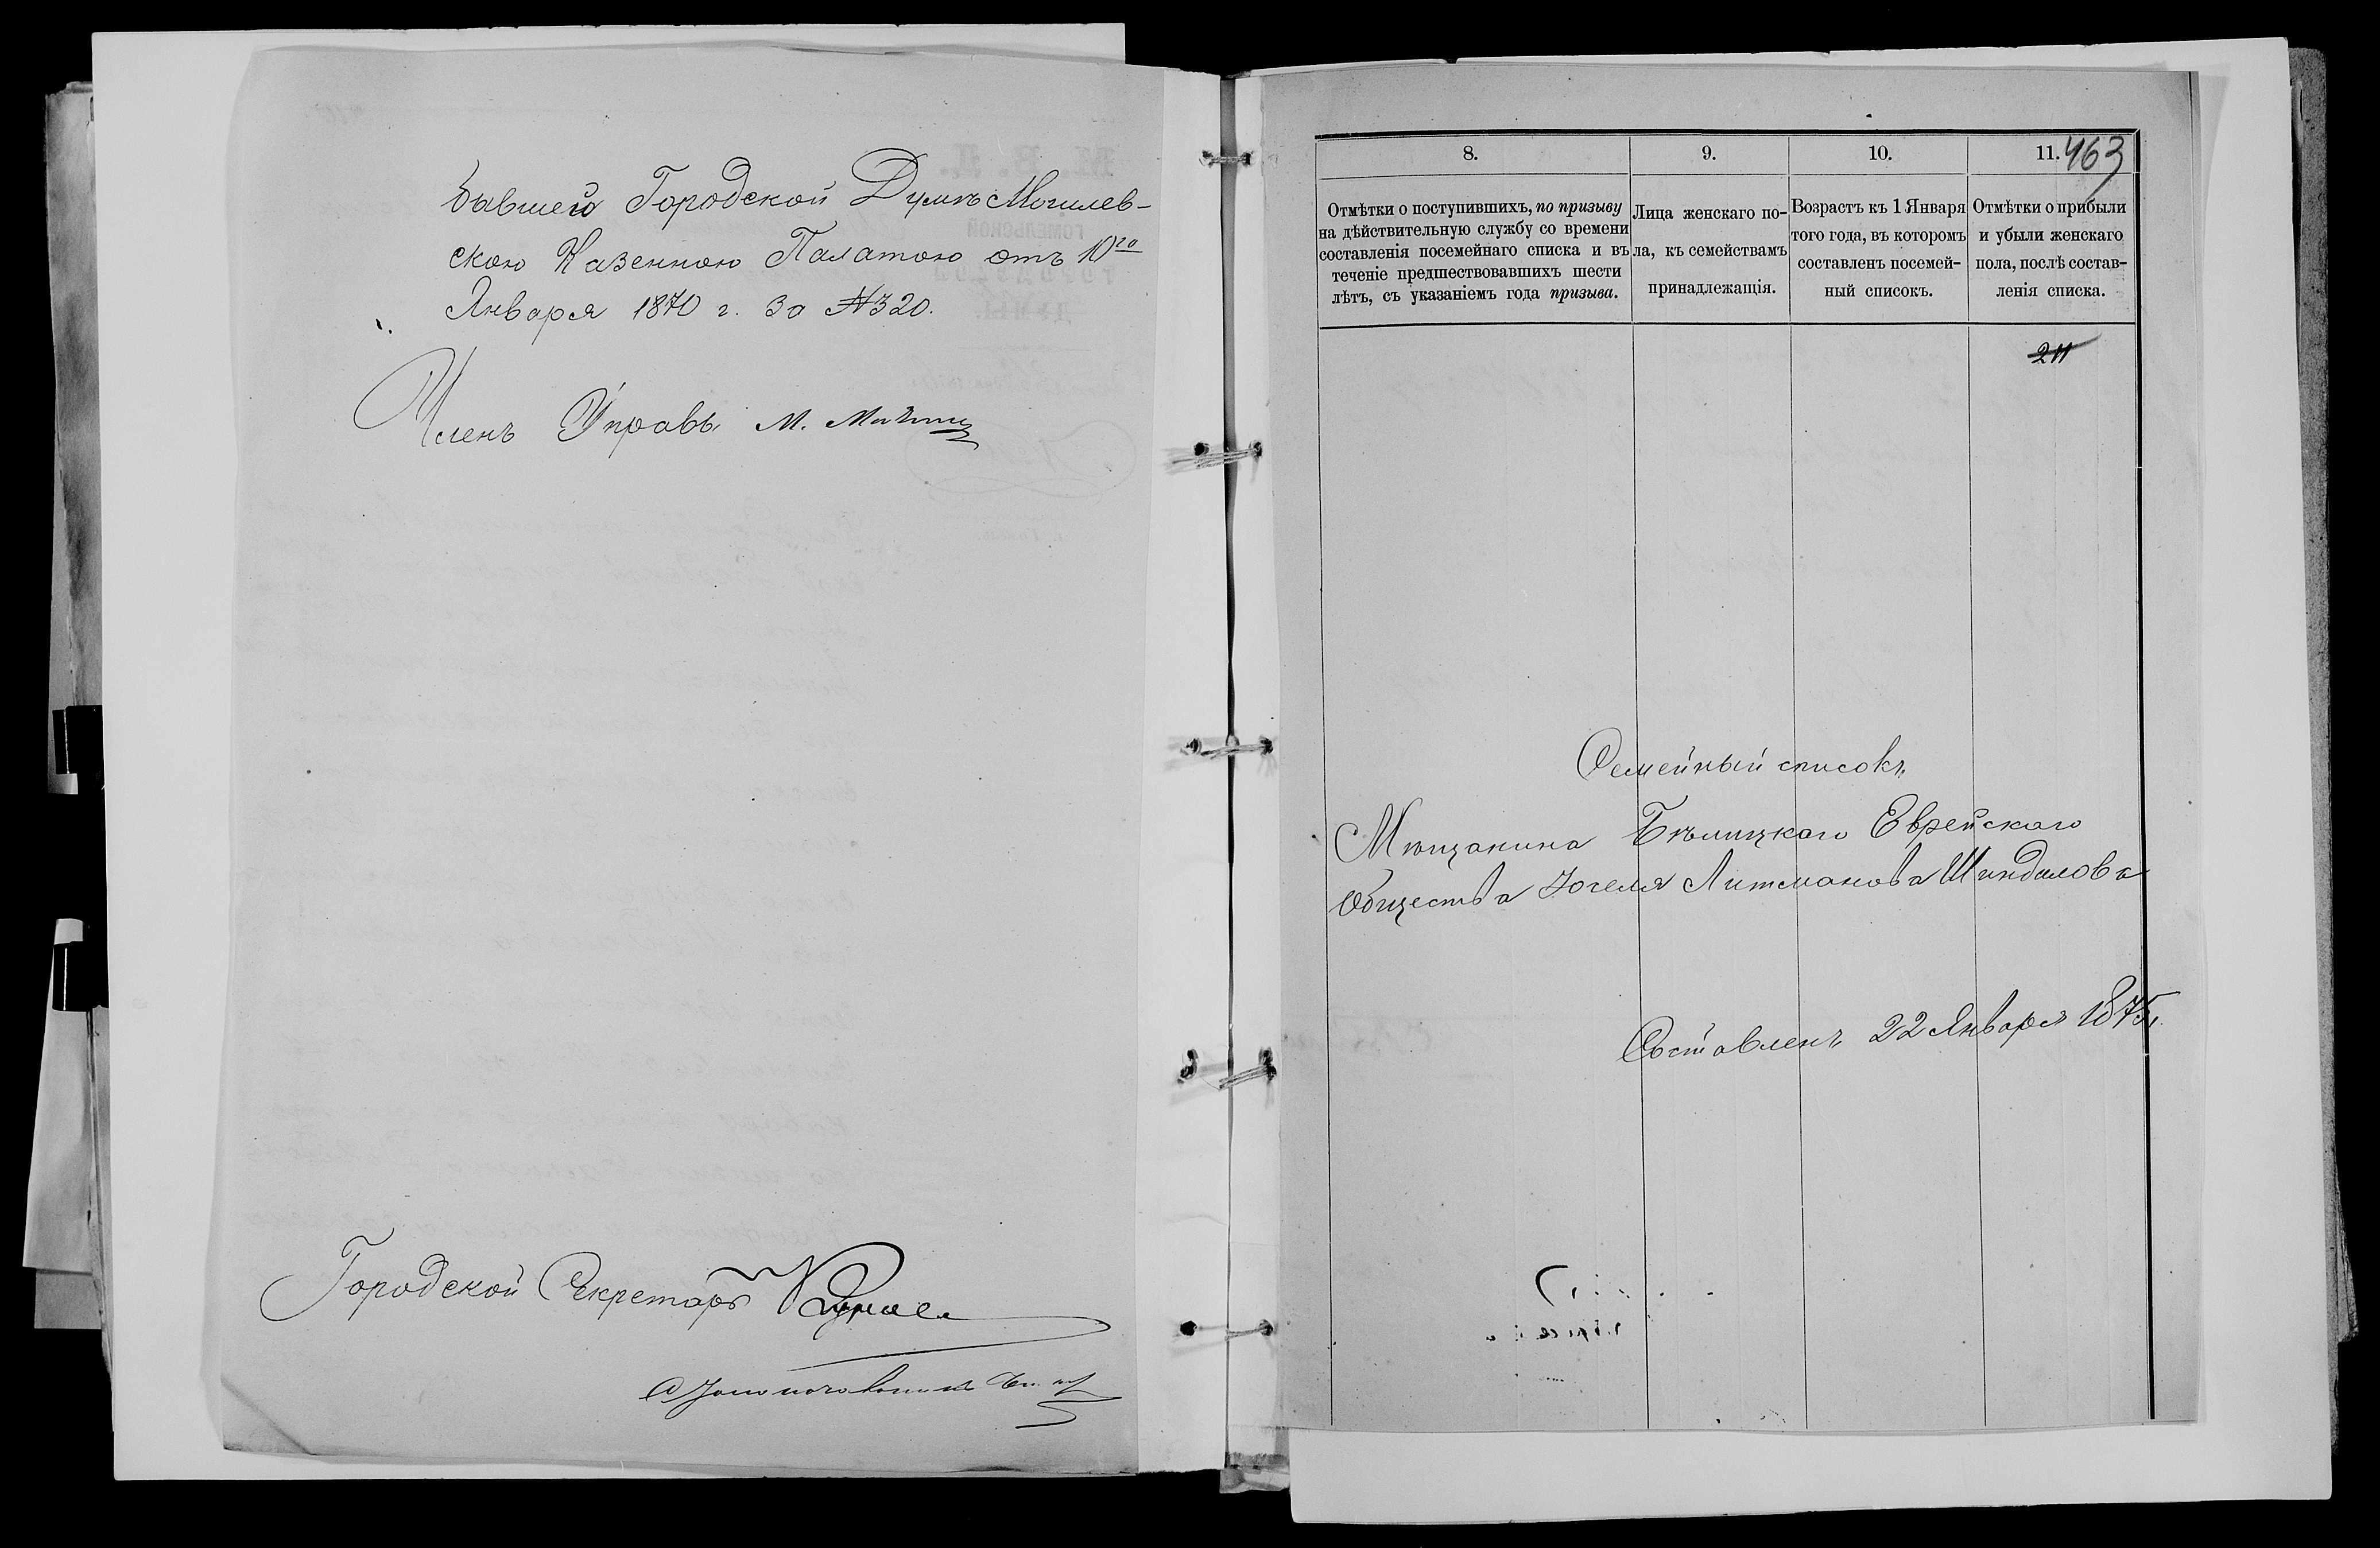 бывшей Городской Думѣ Могилев-
скою Казенною Палатою отъ 10го
Января 1870 г. за №320.
Членъ Управы М.
Городской Секретарь
8.
9.
10.
11.
463
Отмѣтки о поступившихъ, по призыву
на дѣйствительную службу со времени
составленія посемейнаго списка и въ
теченіе предшествовавшихъ шести
лѣтъ, съ указаніемъ года призыва.
Лица женскаго по-
ла, къ семействамъ
принадлежащія.
Возрастъ къ 1 Января
того года, въ которомъ
составленъ посемей-
ный списокъ.
Отмѣтки о прибыли
и убыли женскаго
пола, послѣ состав-
ленія списка.
211
Семейный списокъ
Мѣщанина Бѣлицкаго Еврейскаго
Общества Іоселя Литманова Шиндалова
Составленъ 22 Января 1875г.